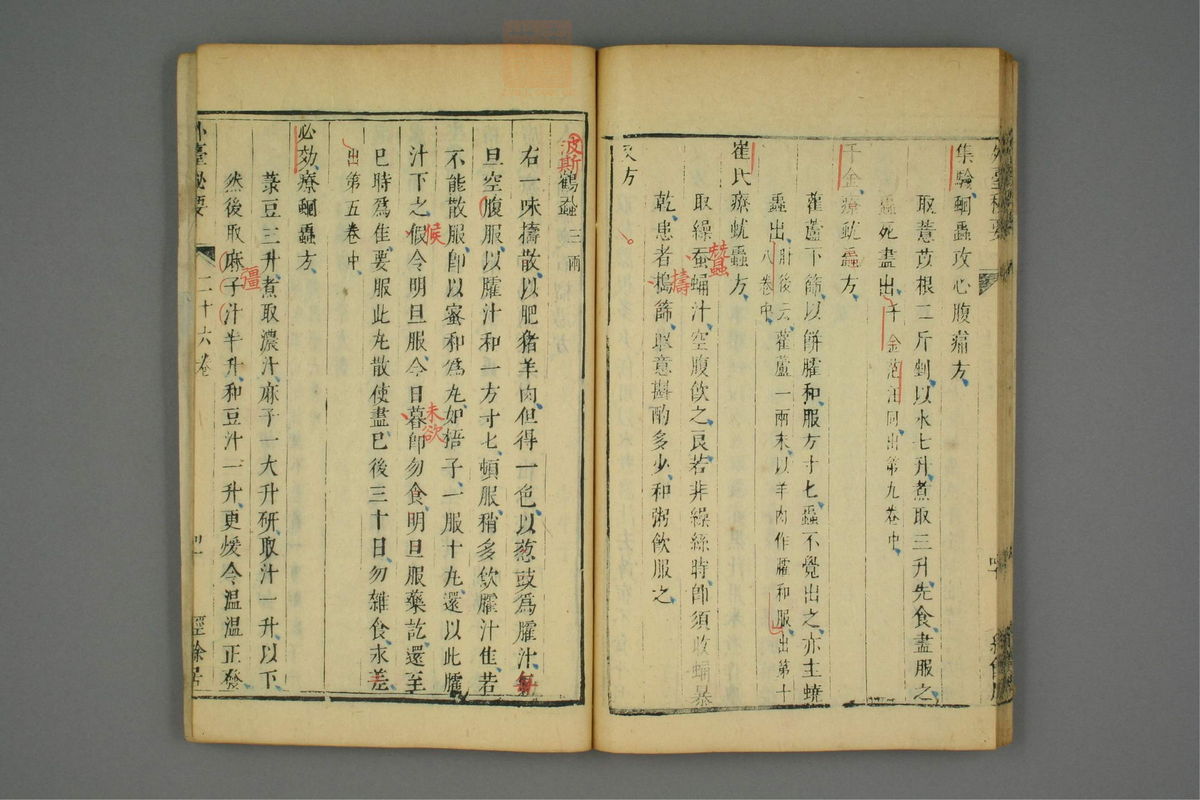 集驗蛔蟲攻心腹痛方
取薏苡根二斤剉以水七升煮取三升先食盡服之
蟲死盡出千金范汪同出第九卷中
千金療蚘蟲方
雚蘆下篩以餅臛和服方寸匕蟲不覺出之亦主蟯
蟲出肘後云雚蘆一兩末以羊肉作臛和服出第十八卷中
崔氏療蚘蟲方
取繰蚕蛹汁空腹飲之良若非繰絲時即須收蛹暴
乾患者搗篩取意斟酌多少和粥飲服之
又方
鶴蝨三兩
右一味擣散以肥猪羊肉但得一色以葱豉爲臛汁
旦空腹服以臛汁和一方寸匕頓服稍多飲臛汁佳若
不能散服即以蜜和爲丸如梧子一服十丸還以此臛
汁下之假令明旦服今日暮即勿食明旦服藥訖還至
巳時爲佳要服此丸散使盡已後三十日勿雜食永差
出第五卷中
必効療蛔蟲方
菉豆三升煮取濃汁麻子一大升研取汁一升以下
然後取麻子汁半升和豆汁一升更煖令温温正發
外臺秘要
二十六卷
四一
經餘居
波斯
候
未欲
彊
蠶
擣